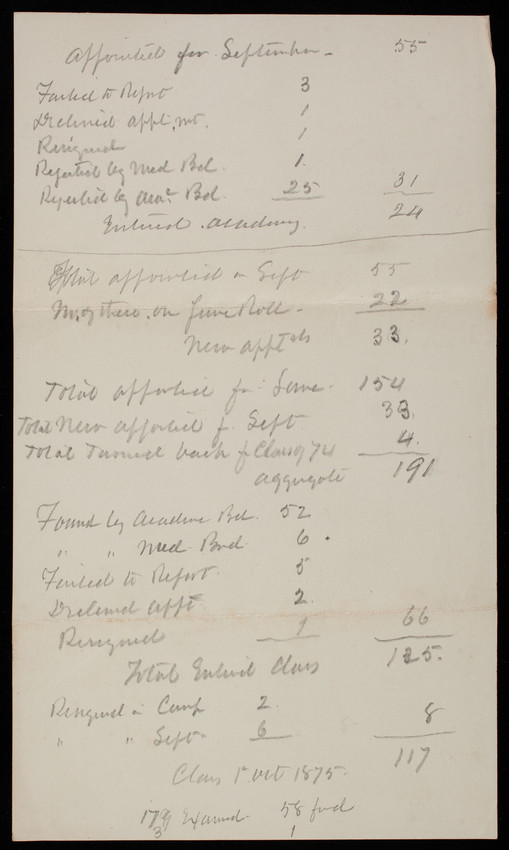 Appointed for September - 55
Failed to Report 3
Declined appt.mt. 1
Resigned 1
Rejected by Med Bd. 1.
Rejected by Aca. Bd. 25 31
Entered Academy. 24
Total appointed in Sept 55
No. of these on June Roll - 22
New apptmts 33.
Total appointed for June - 154
Total New appointed f. Sept 33.
Total Turned back f Class of 74 4.
aggregate 191
Found by Academic Bd. 52
" " Med. Brd. 6.
Failed to Report. 5
Declined appt. 2.
Resigned 1 66
Total Entered Class 125.
Resigned in Camp 2.
" " Sept. 6 8
Class 1st Oct 1875. 117
179 Examd. 58 fnd
3 1